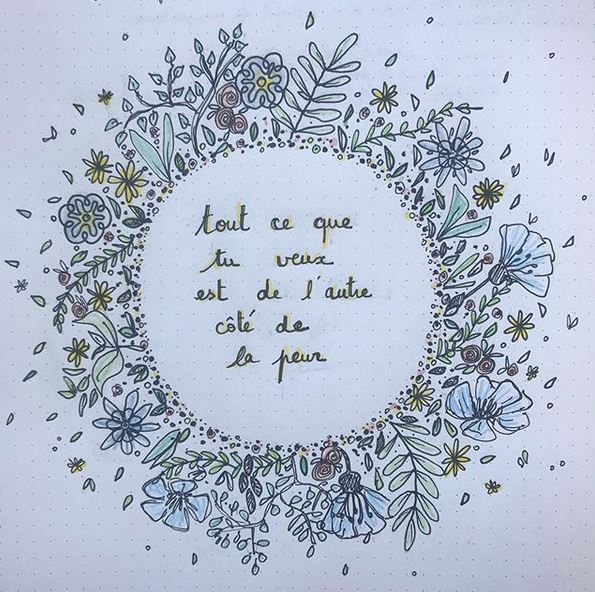 tout ce que
tu veux
est de l'autre
côté de
la peur